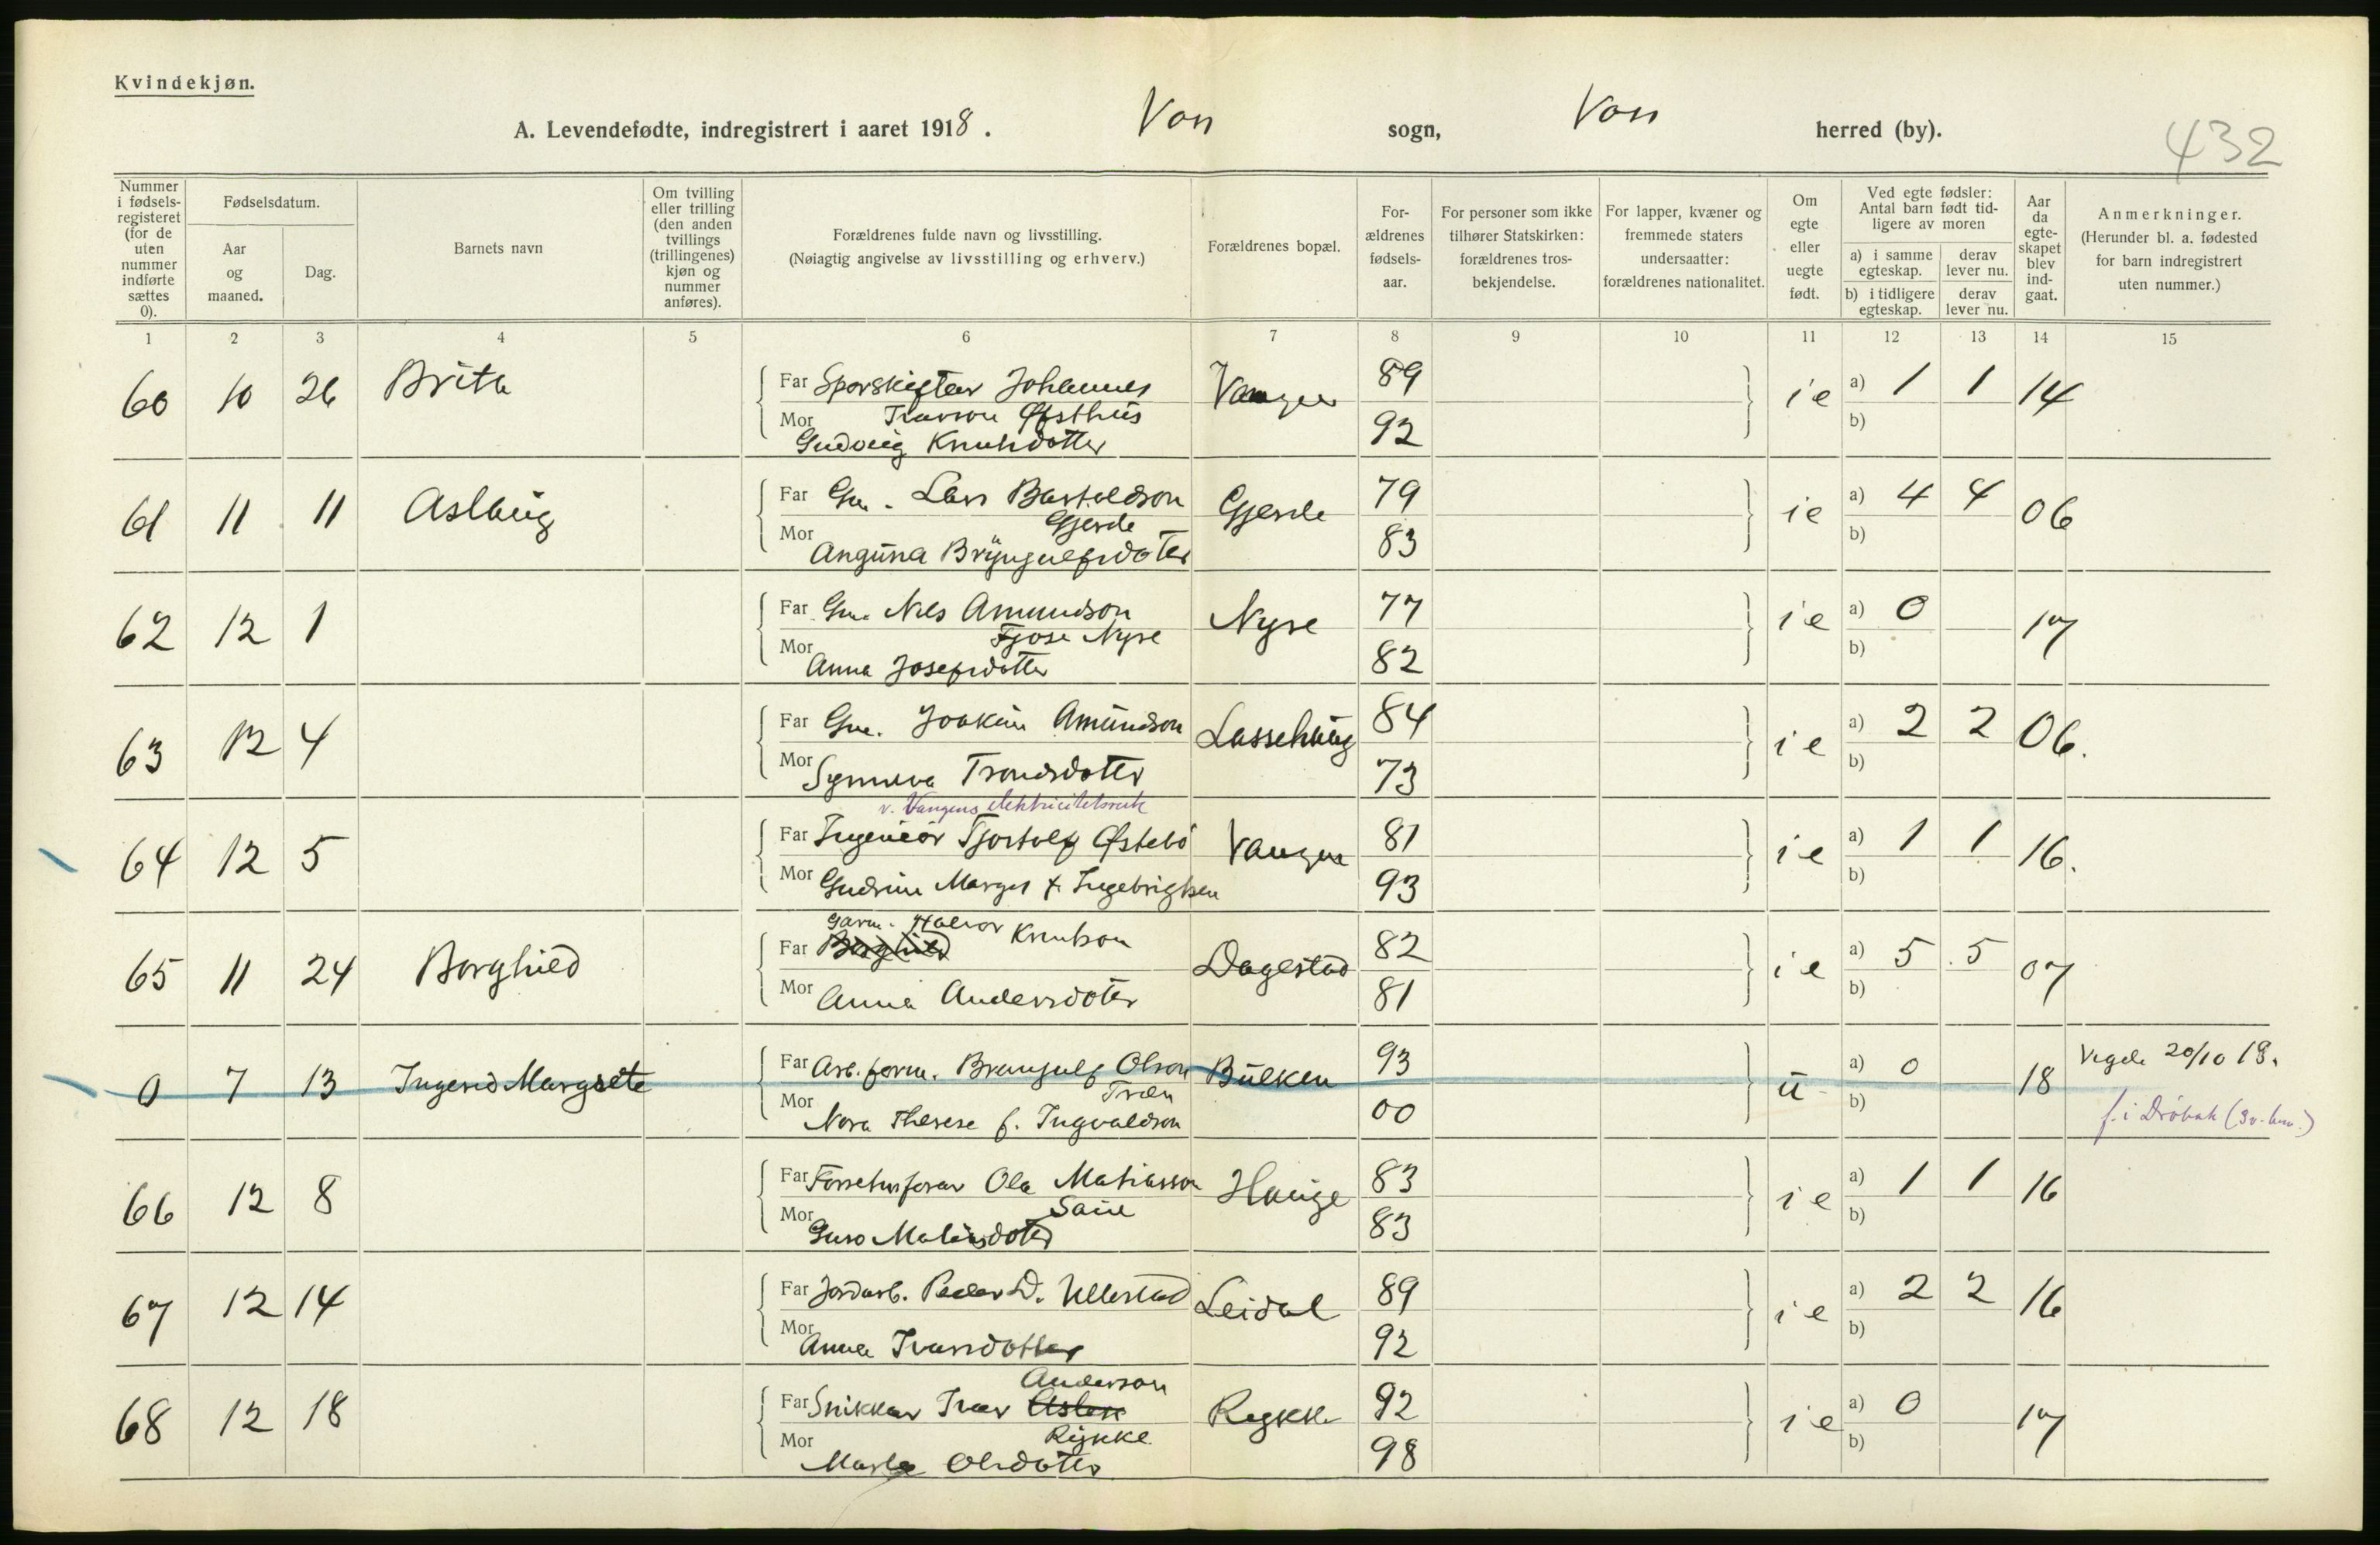 Kvindekjøn.
A. Levendefødte, indregistrert i aaret 1918. Voss sogn, Voss herred (by).
432
Nummer i fødsels-registeret (for de uten nummer indførte sættes 0).
Fødselsdatum.
Aar og maaned.
Dag.
Barnets navn
Om tvilling eller trilling (den anden tvillings (trillingenes) kjøn og nummer anføres).
Forældrenes fulde navn og livsstilling.
(Nøiagtig angivelse av livsstilling og erhverv.)
Forældrenes bopæl.
For-ældrenes fødsels-aar.
For personer som ikke tilhører Statskirken: forældrenes tros-bekjendelse.
For lapper, kvæner og fremmede staters undersaatter: forældrenes nationalitet.
Om egte eller uegte født.
Ved egte fødsler: Antal barn født tid-ligere av moren
a) i samme egteskap.
derav lever nu.
b) i tidligere egteskap.
derav lever nu.
Aar da egte-skapet blev ind-gaat.
Anmerkninger.
(Herunder bl. a. fødested for barn indregistrert uten nummer.)
1 2 3 4 5 6 7 8 9 10 11 12 13 14 15
60 10 26 Brita Far Sporskiftar Johannes Vangen 89 ie a) 1 1 14
Ivarson Øfsthus
Mor Gudveig Knutsdotter 92 b)
61 11 11 Aslaug Far Gm. Lars Bastoldson Gjerde 79 ie a) 4 4 06
Gjerde
Mor Anguna Bryngulfsdoter 83 b)
62 12 1 Far Gm. Nils Amundson Nyre 77 ie a) 0 17
Fjose Nyre
Mor Anna Josefsdotter 82 b)
63 12 4 Far Gm. Joakim Amundson Lassehaug 84 ie a) 2 2 06.
Mor Synneva Trondsdotter 73 b)
v. Vangens elektricitetsverk
64 12 5 Far Ingeniør Tjostolf Østebø Vangen 81 ie a) 1 1 16.
Mor Gudrun Margit f. Ingebrigtsen 93 b)
Garm. Halvor Knutson
65 11 24 Borghild Far Borghild Dagestad 82 ie a) 5 5 07
Mor Anna Andersdoter 81 b)
0 7 13 Ingerid Margrete Far Arb.form. Bryngulf Olson Bulken 93 u a) 0 18 Vigde 20/10 18.
Træn
Mor Nora Therese f. Ingvaldson 00 b) f. i Drøbak
66 12 8 Far Forretnsforar Ola Matiasson Hauge 83 ie a) 1 1 16
Saue
Mor Guro Matiasdoter 83 b)
67 12 14 Far Jordarb. Peder D. Ullestad Leidal 89 ie a) 2 2 16
Mor Anna Ivarsdotter 92 b)
Anderson
68 12 18 Far Snikkar Ivar Aslak Rykke 92 ie a) 0 17
Rykke
Mor Marta Olsdotter 98 b)